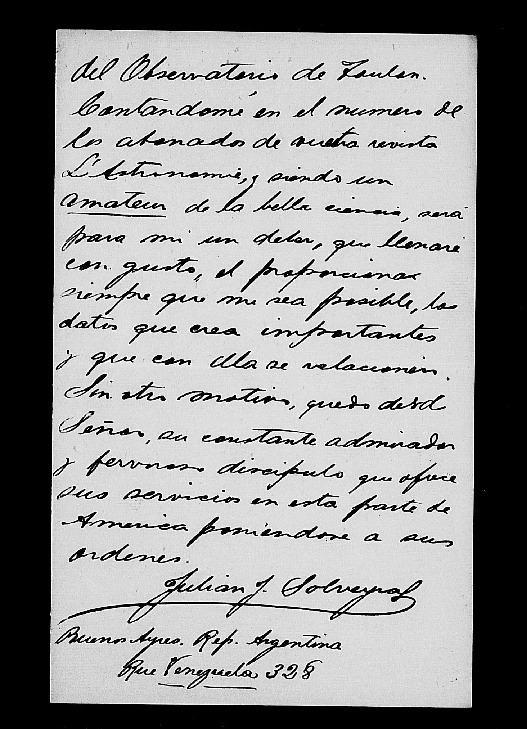 del Observatorio de Toulon.
Contandome en el numero de
los abonados de vuestra revista
L'Astronomie, y siendo un
amateur de la bella ciencia, será
para mi un deber, que llenaré
con gusto, el proporcionar
siempre que me sea posible, los
datos que crea importantes
y que con ella se relacionen.
Sin otro motivo, quedo de Vd
Señor, su constante admirador
y fervoroso discipulo que ofrece
sus servicios en esta parte de
America poniendose a sus
ordenes.
Julian J. Solveyra
Buenos Ayres. Rep. Argentina
Rue Venezuela 328